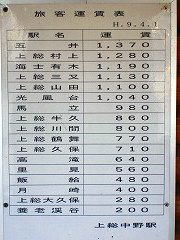 旅客運賃表
H.9.4.1
駅名 運賃
五井 1,370
上総村上 1,280
海士有木 1,190
上総三又 1,130
上総山田 1,100
光風台 1,040
馬立 980
上総牛久 860
上総川間 800
上総鶴舞 770
上総久保 710
高滝 640
里見 560
飯給 480
月崎 400
上総大久保 280
養老渓谷 200
上総中野駅